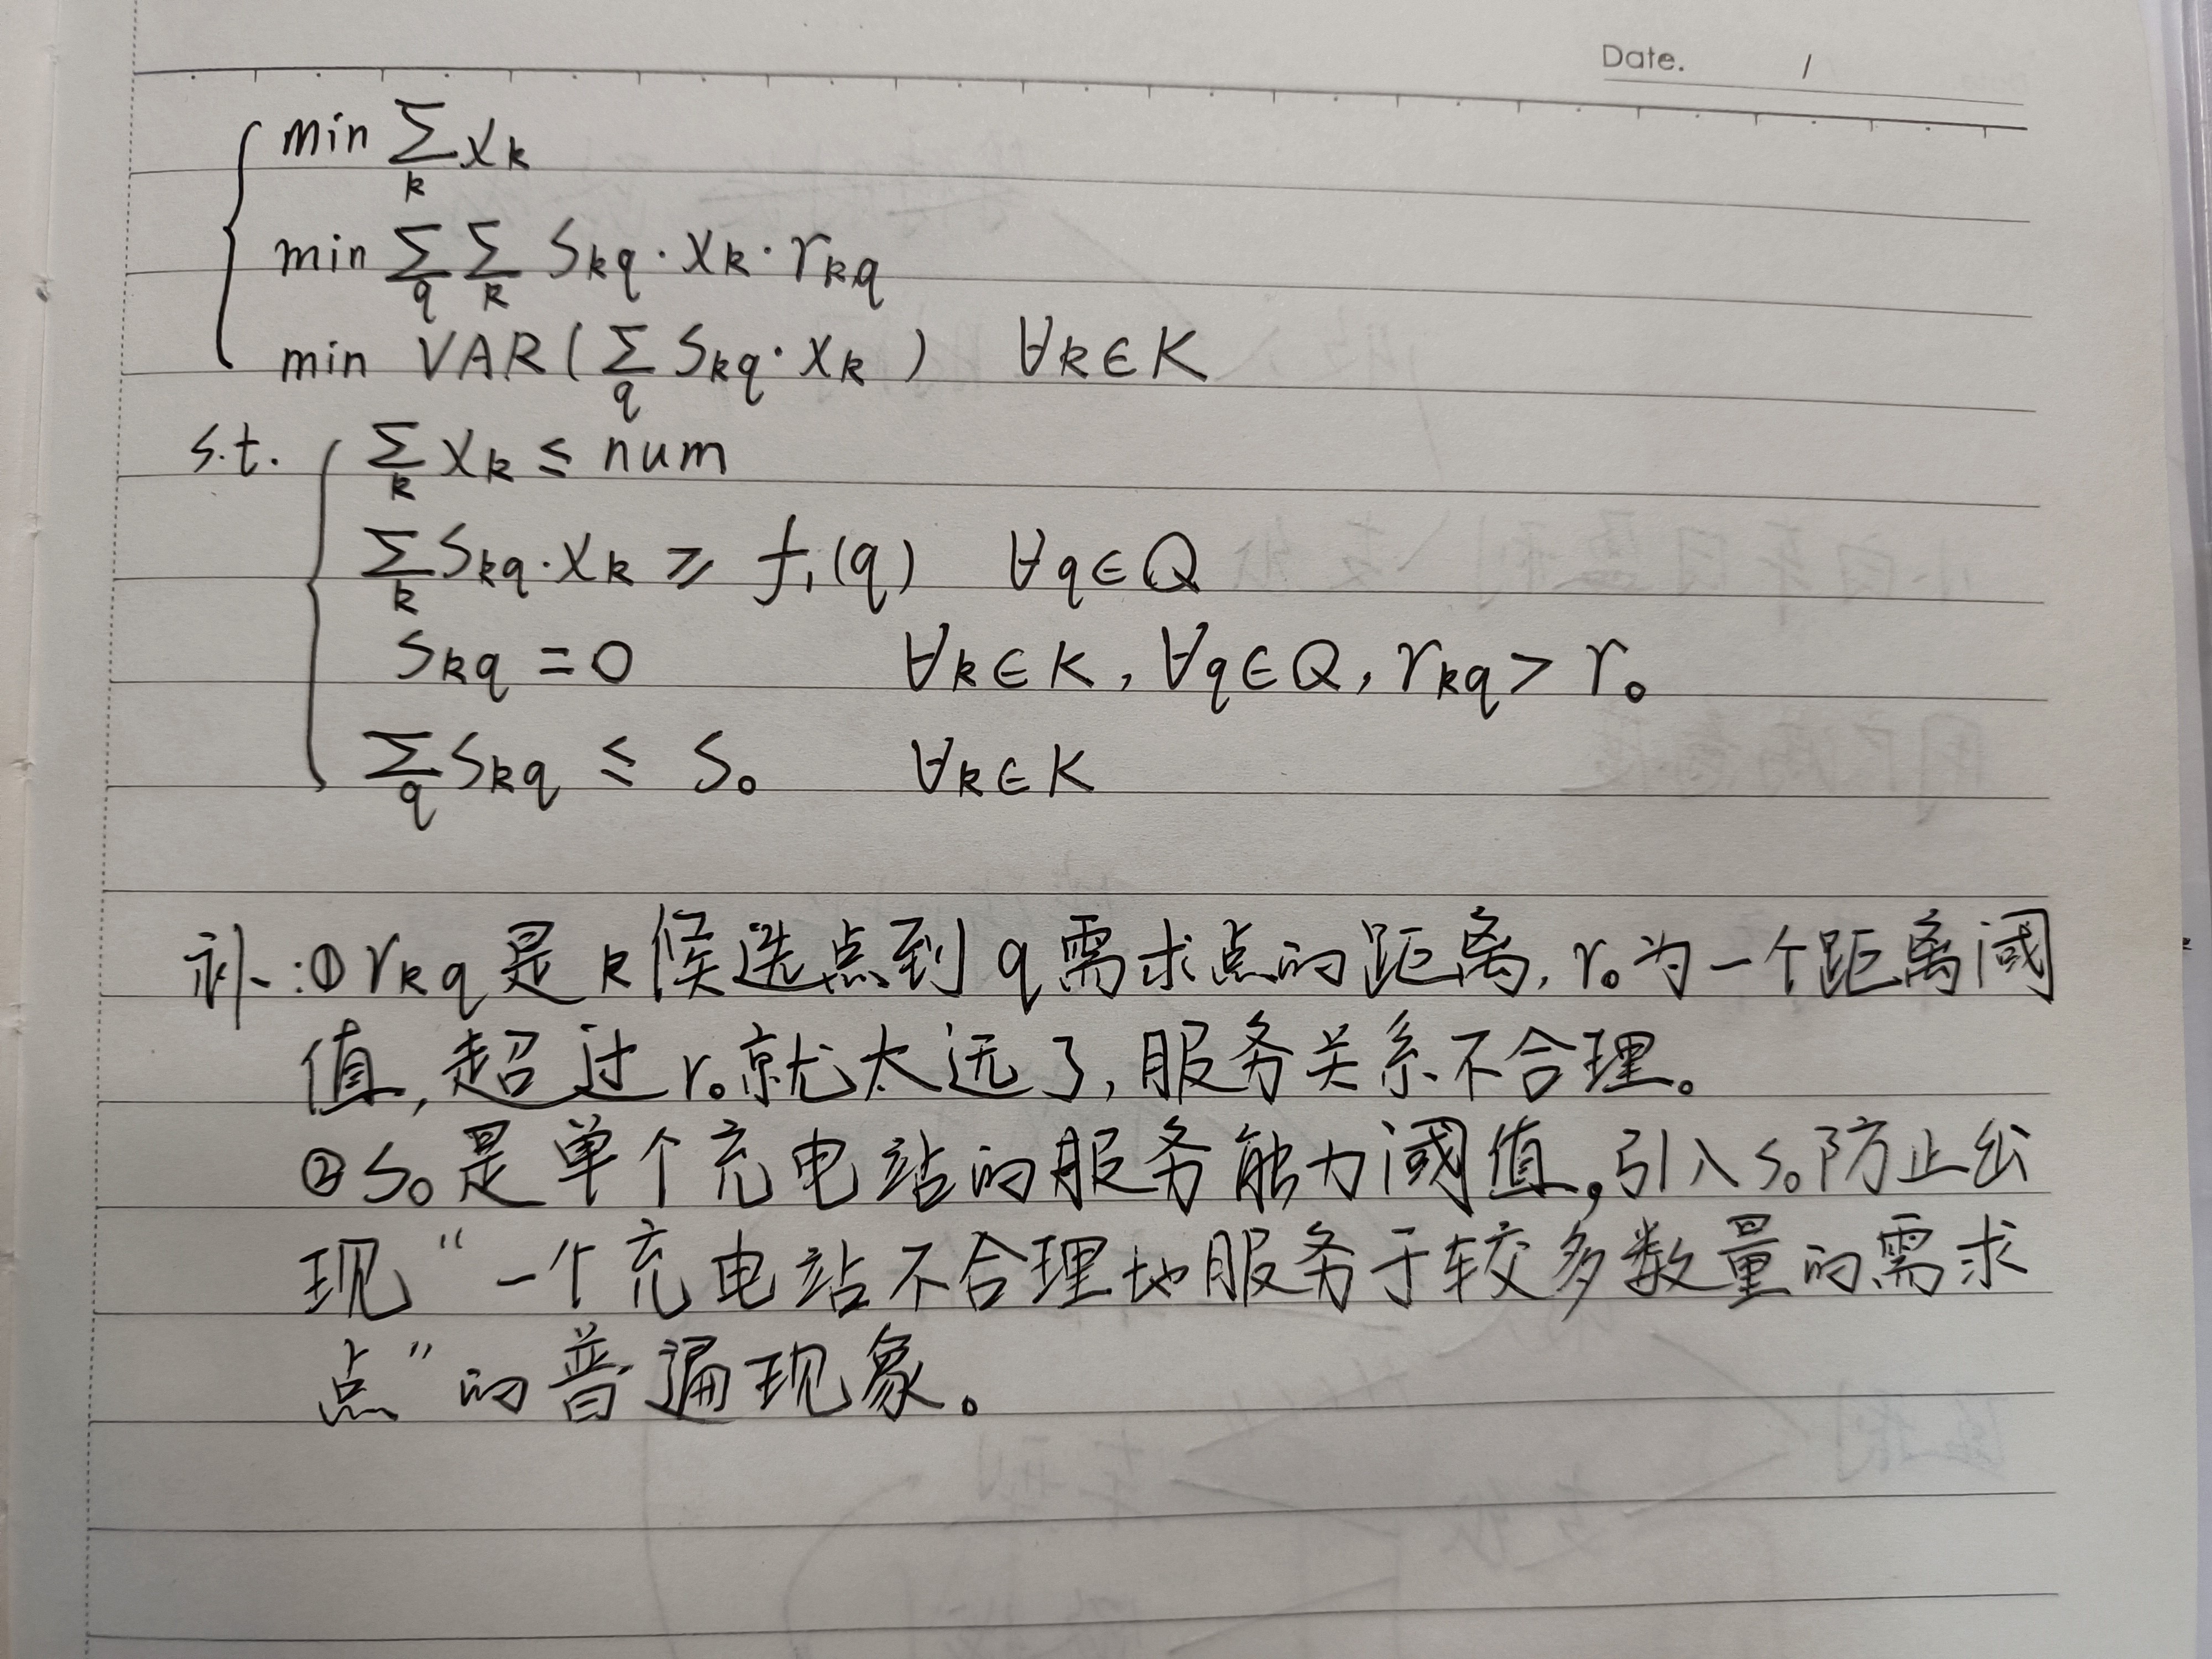 Date. /
min ∑_k x_k
min ∑_q ∑_k S_kq · x_k · r_kq
min VAR(∑_q S_kq · x_k) ∀k∈K
s.t. ∑_k x_k ≤ num
∑_k S_kq · x_k ≥ f_1(q) ∀q∈Q
S_kq = 0 ∀k∈K, ∀q∈Q, r_kq > r_0
∑_q S_kq ≤ S_0 ∀k∈K
补:① r_kq 是 k 候选点到 q 需求点的距离, r_0 为一个距离阈
值, 超过 r_0 就太远了, 服务关系不合理。
② S_0 是单个充电站的服务能力阈值, 引入 S_0 防止出
现 “一个充电站不合理地服务于较多数量的需求
点” 的普遍现象。